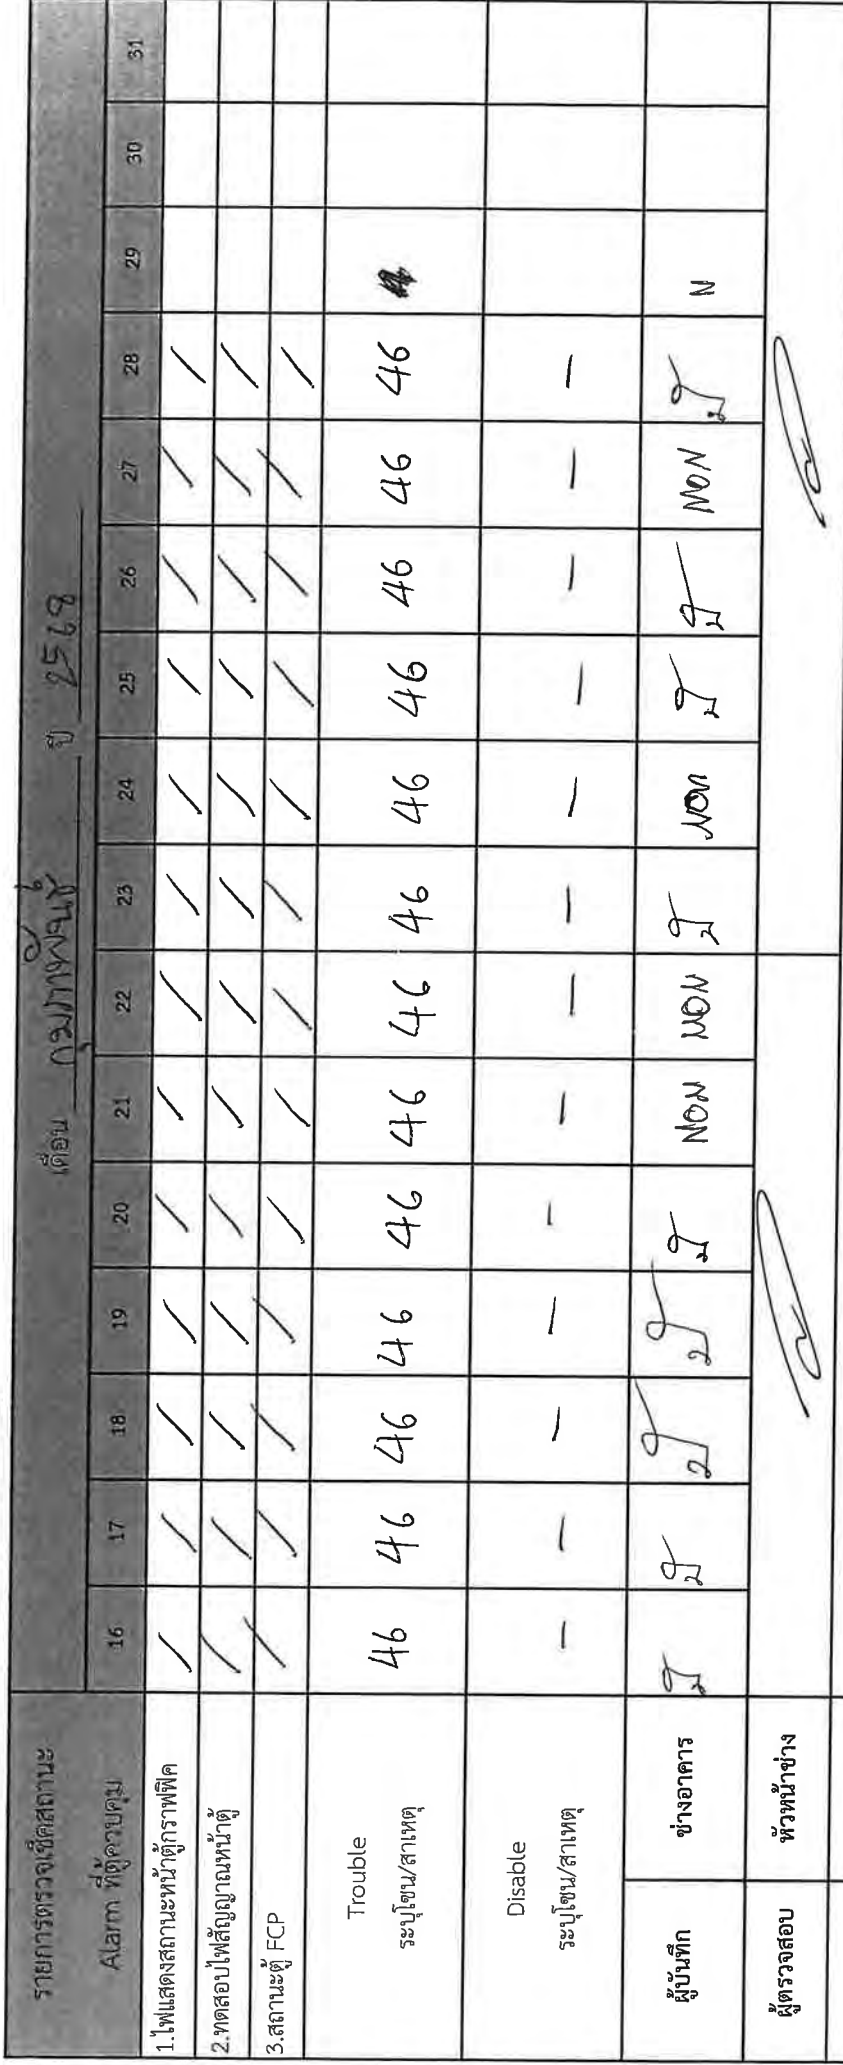 เดือน กุมภาพันธ์ ปี 2568
รายการตรวจเช็คสถานะ
Alarm ที่ตู้ควบคุม 16 17 18 19 20 21 22 23 24 25 26 27 28 29 30 31
1.ไฟแสดงสถานะหน้าตู้กราฟฟิค / / / / / / / / / / / / /
2.ทดสอบไฟสัญญาณหน้าตู้ / / / / / / / / / / / / /
3.สถานะตู้ FCP / / / / / / / / / / / / /
Trouble
ระบุโซน/สาเหตุ 46 46 46 46 46 46 46 46 46 46 46 46 46
Disable
ระบุโซน/สาเหตุ - - - - - - - - - - - - -
ผู้บันทึก ช่างอาคาร NON NON NON NON N
ผู้ตรวจสอบ หัวหน้าช่าง